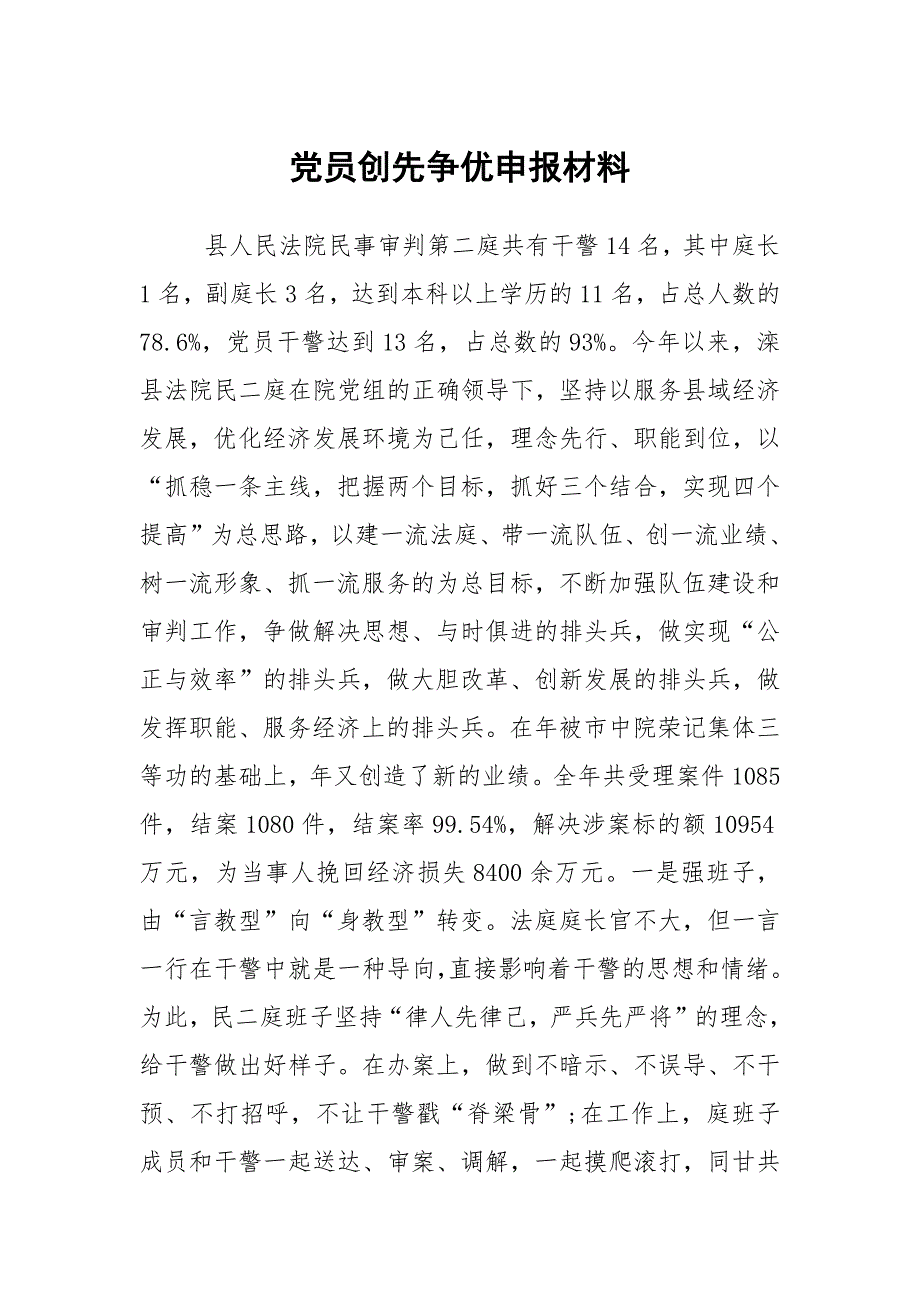 党员创先争优申报材料
县人民法院民事审判第二庭共有干警 14 名，其中庭长
1 名，副庭长 3 名，达到本科以上学历的 11 名，占总人数的
78.6%，党员干警达到 13 名，占总数的 93%。今年以来，滦
县法院民二庭在院党组的正确领导下，坚持以服务县域经济
发展，优化经济发展环境为己任，理念先行、职能到位，以
“抓稳一条主线，把握两个目标，抓好三个结合，实现四个
提高”为总思路，以建一流法庭、带一流队伍、创一流业绩、
树一流形象、抓一流服务的为总目标，不断加强队伍建设和
审判工作，争做解决思想、与时俱进的排头兵，做实现“公
正与效率”的排头兵，做大胆改革、创新发展的排头兵，做
发挥职能、服务经济上的排头兵。在年被市中院荣记集体三
等功的基础上，年又创造了新的业绩。全年共受理案件 1085
件，结案 1080 件，结案率 99.54%，解决涉案标的额 10954
万元，为当事人挽回经济损失 8400 余万元。一是强班子，
由“言教型”向“身教型”转变。法庭庭长官不大，但一言
一行在干警中就是一种导向,直接影响着干警的思想和情绪。
为此，民二庭班子坚持“律人先律己，严兵先严将”的理念，
给干警做出好样子。在办案上，做到不暗示、不误导、不干
预、不打招呼，不让干警戳“脊梁骨”;在工作上，庭班子
成员和干警一起送达、审案、调解，一起摸爬滚打，同甘共